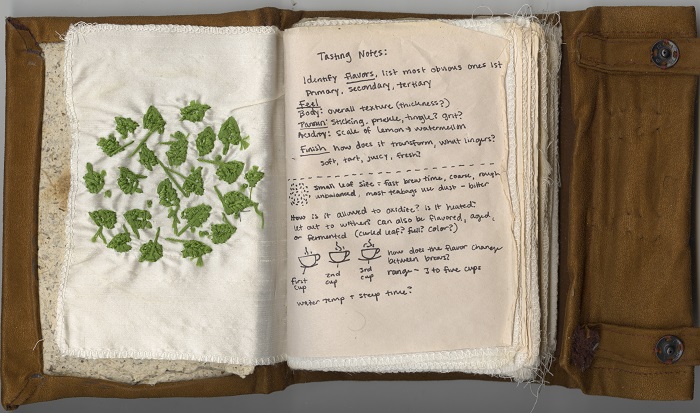 Tasting Notes:
Identify flavors, list most obvious ones 1st
Primary, secondary, tertiary
Feel
Body: overall texture (thickness?)
Tannin: sticking, prickle, tingle? grit?
Acidity: scale of lemon → watermelon
Finish how does it transform, what lingers?
soft, tart, juicy, fresh?
small leaf size = fast brew time, coarse, rough
unbalanced, most teabags use dust - bitter
How is it allowed to oxidize? is it heated?
let out to wither? can also be flavored, aged,
or fermented (curled leaf? full? color?)
first cup
2nd cup
3rd cup
how does the flavor change
between brews?
range - 3 to five cups
water temp + steep time?